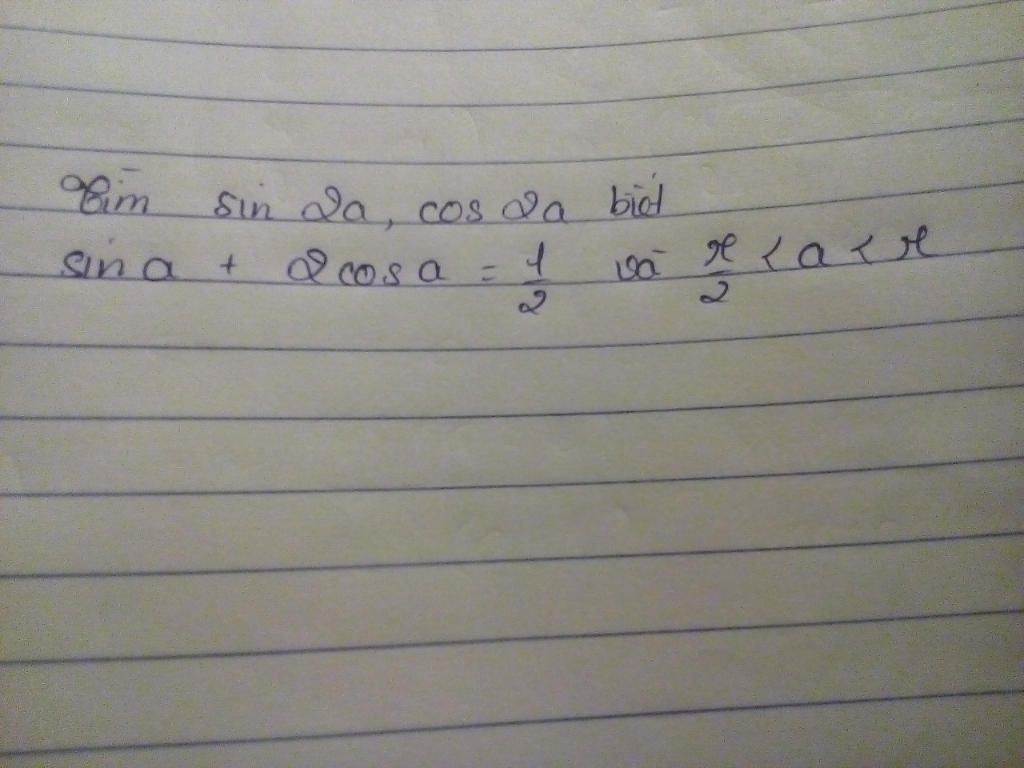 Tìm sin 2a, cos 2a biết
sin a + 2 cos a = 1/2 và π/2 < a < π